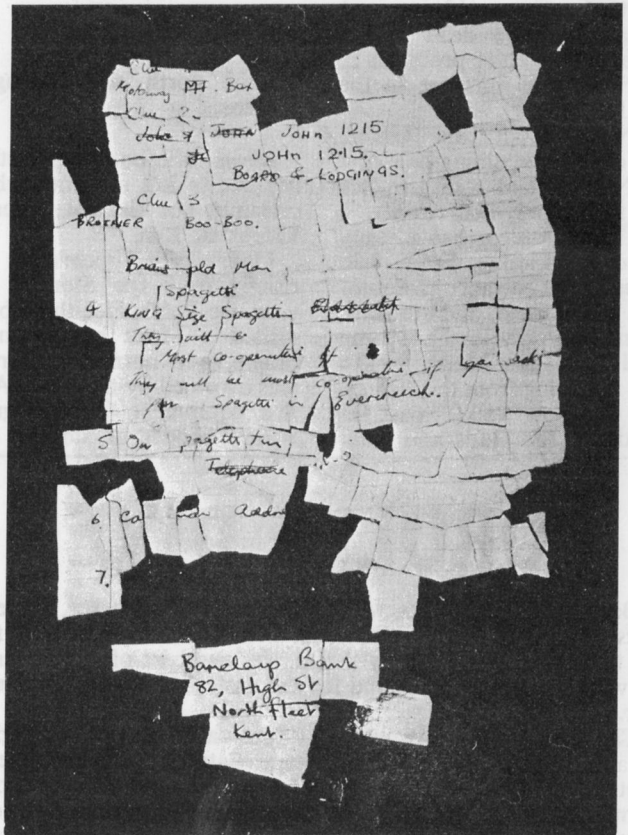 Clue
Motorway MT. Box
Clue 2
John & JOHN JOHN 1215
JOHN 1215.
BOARD & LODGINGS.
Clue 3
BROTHER BOO-BOO.
Brians old Man
Spagetti
4 KING Size Spagetti
They will be
Most co-operative if
They will be most co-operative if you ask
for Spagetti in Evercreech.
5 On spagetti tin
Telephone
6 Ca man Addre
7.
Barclays Bank
82, High St
Northfleet
Kent.